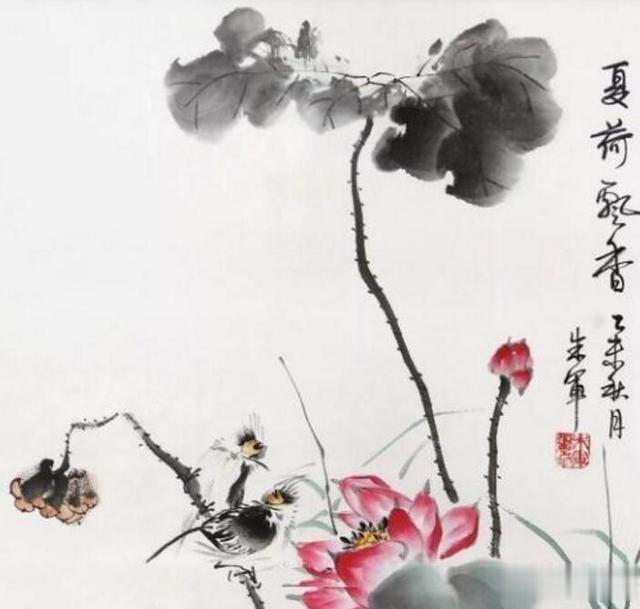 夏荷飘香
乙未秋月
朱军